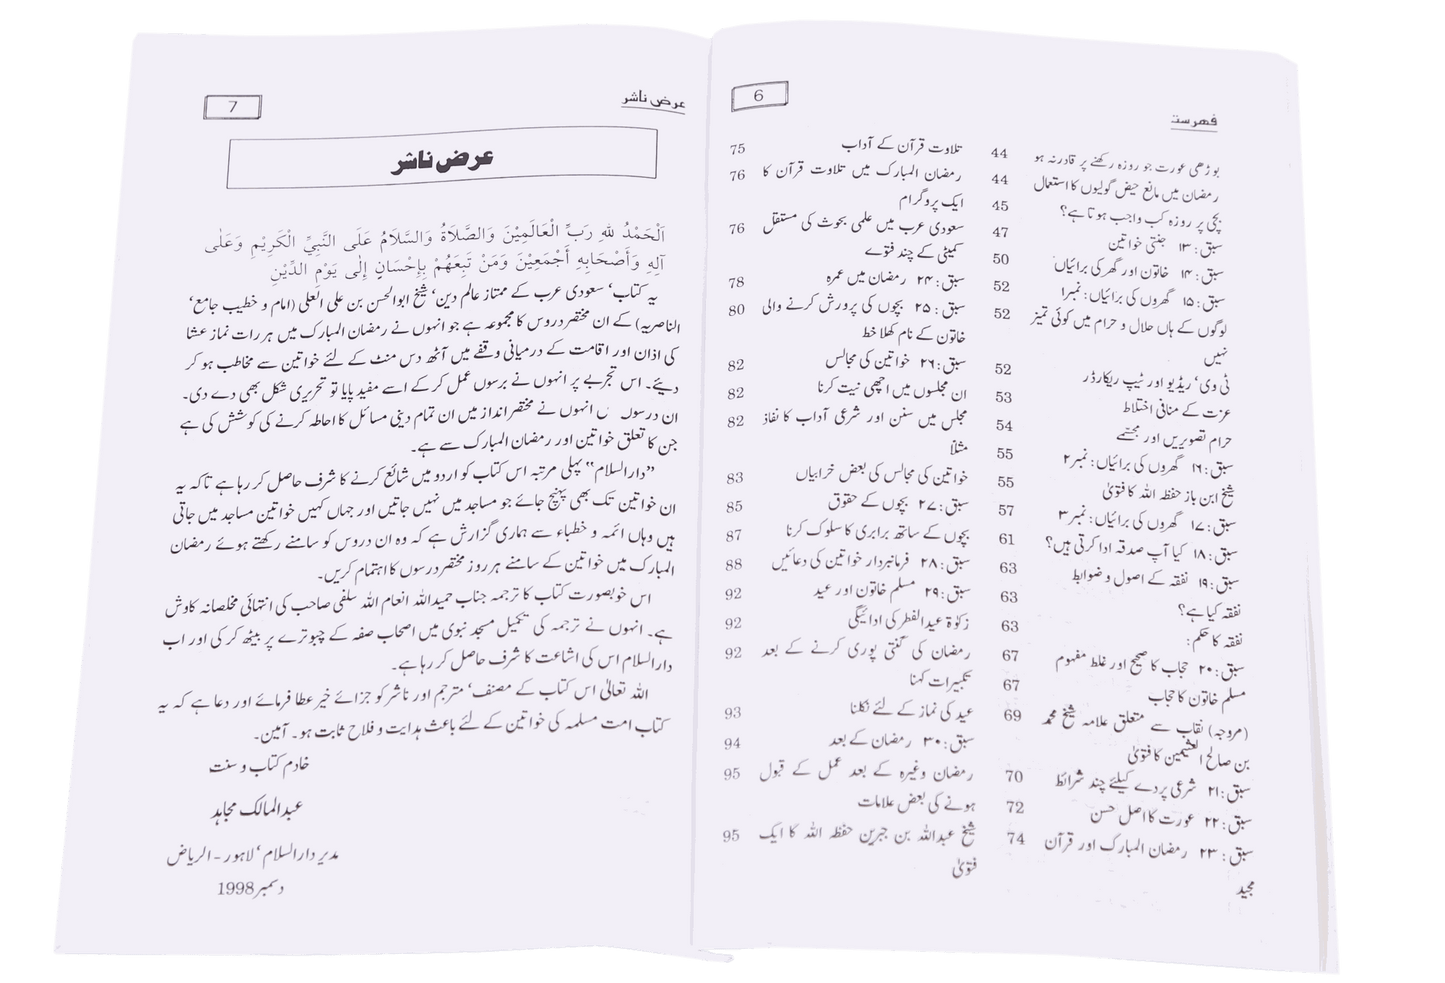 فہرست
6
بوڑھی عورت جو روزہ رکھنے پر قادر نہ ہو 44
رمضان میں مانع حیض گولیوں کا استعمال 44
بچی پر روزہ کب واجب ہوتا ہے؟ 45
سبق: ۱۳ جنتی خواتین 47
سبق: ۱۴ خاتون اور گھر کی برائیاں 50
سبق: ۱۵ گھروں کی برائیاں: نمبر۱ 52
لوگوں کے ہاں حلال و حرام میں کوئی تمیز 52
نہیں
ٹی وی، ریڈیو اور ٹیپ ریکارڈر 52
عزت کے منافی اختلاط 53
حرام تصویریں اور مجسمے 54
سبق: ۱۶ گھروں کی برائیاں: نمبر۲ 55
شیخ ابن باز حفظہ اللہ کا فتویٰ 55
سبق: ۱۷ گھروں کی برائیاں: نمبر۳ 57
سبق: ۱۸ کیا آپ صدقہ ادا کرتی ہیں؟ 61
سبق: ۱۹ نفقہ کے اصول و ضوابط 63
نفقہ کیا ہے؟ 63
نفقہ کا حکم: 63
سبق: ۲۰ حجاب کا صحیح اور غلط مفہوم 67
مسلم خاتون کا حجاب 67
(مروجہ) نقاب سے متعلق علامہ شیخ محمد 69
بن صالح العثیمین کا فتویٰ
سبق: ۲۱ شرعی پردے کیلئے چند شرائط 70
سبق: ۲۲ عورت کا اصل حسن 72
سبق: ۲۳ رمضان المبارک اور قرآن 74
مجید
تلاوت قرآن کے آداب 75
رمضان المبارک میں تلاوت قرآن کا 76
ایک پروگرام
سعودی عرب میں علمی بحوث کی مستقل 76
کمیٹی کے چند فتوے
سبق: ۲۴ رمضان میں عمرہ 78
سبق: ۲۵ بچوں کی پرورش کرنے والی 80
خاتون کے نام کھلا خط
سبق: ۲۶ خواتین کی مجالس 82
ان مجلسوں میں اچھی نیت کرنا 82
مجلس میں سنن اور شرعی آداب کا نفاذ 82
مثلاً
خواتین کی مجالس کی بعض خرابیاں 83
سبق: ۲۷ بچوں کے حقوق 85
بچوں کے ساتھ برابری کا سلوک کرنا 87
سبق: ۲۸ فرمانبردار خواتین کی دعائیں 88
سبق: ۲۹ مسلم خاتون اور عید 92
زکوٰۃ عید الفطر کی ادائیگی 92
رمضان کی گنتی پوری کرنے کے بعد 92
تکبیرات کہنا
عید کی نماز کے لئے نکلنا 93
سبق: ۳۰ رمضان کے بعد 94
رمضان وغیرہ کے بعد عمل کے قبول 95
ہونے کی بعض علامات
شیخ عبداللہ بن جبرین حفظہ اللہ کا ایک 95
فتویٰ
عرض ناشر
7
عرض ناشر
اَلْحَمْدُ للهِ رَبِّ الْعَالَمِيْنَ وَالصَّلَاةُ وَالسَّلَامُ عَلَى النَّبِيِّ الْكَرِيْمِ وَعَلٰى
آلِهِ وَأَصْحَابِهِ أَجْمَعِيْنَ وَمَنْ تَبِعَهُمْ بِإِحْسَانٍ إِلٰى يَوْمِ الدِّيْنِ
یہ کتاب، سعودی عرب کے ممتاز عالم دین، شیخ ابوالحسن بن علی العلی (امام و خطیب جامع،
الناصریہ) کے ان مختصر دروس کا مجموعہ ہے جو انہوں نے رمضان المبارک میں ہر رات نماز عشا
کی اذان اور اقامت کے درمیانی وقفے میں آٹھ دس منٹ کے لئے خواتین سے مخاطب ہو کر
دیئے۔ اس تجربے پر انہوں نے برسوں عمل کر کے اسے مفید پایا تو تحریری شکل بھی دے دی۔
ان درسوں انہوں نے مختصر انداز میں ان تمام دینی مسائل کا احاطہ کرنے کی کوشش کی ہے
جن کا تعلق خواتین اور رمضان المبارک سے ہے۔
"دارالسلام" پہلی مرتبہ اس کتاب کو اردو میں شائع کرنے کا شرف حاصل کر رہا ہے تاکہ یہ
ان خواتین تک بھی پہنچ جائے جو مساجد میں نہیں جاتیں اور جہاں کہیں خواتین مساجد میں جاتی
ہیں وہاں ائمہ و خطباء سے ہماری گزارش ہے کہ وہ ان دروس کو سامنے رکھتے ہوئے رمضان
المبارک میں خواتین کے سامنے ہر روز مختصر درسوں کا اہتمام کریں۔
اس خوبصورت کتاب کا ترجمہ جناب حمیداللہ انعام اللہ سلفی صاحب کی انتہائی مخلصانہ کاوش
ہے۔ انہوں نے ترجمہ کی تکمیل مسجد نبوی میں اصحاب صفہ کے چبوترے پر بیٹھ کر کی اور اب
دارالسلام اس کی اشاعت کا شرف حاصل کر رہا ہے۔
اللہ تعالیٰ اس کتاب کے مصنف، مترجم اور ناشر کو جزائے خیر عطا فرمائے اور دعا ہے کہ یہ
کتاب امت مسلمہ کی خواتین کے لئے باعث ہدایت و فلاح ثابت ہو۔ آمین۔
خادم کتاب و سنت
عبدالمالک مجاہد
مدیر دارالسلام، لاہور - الریاض
دسمبر 1998